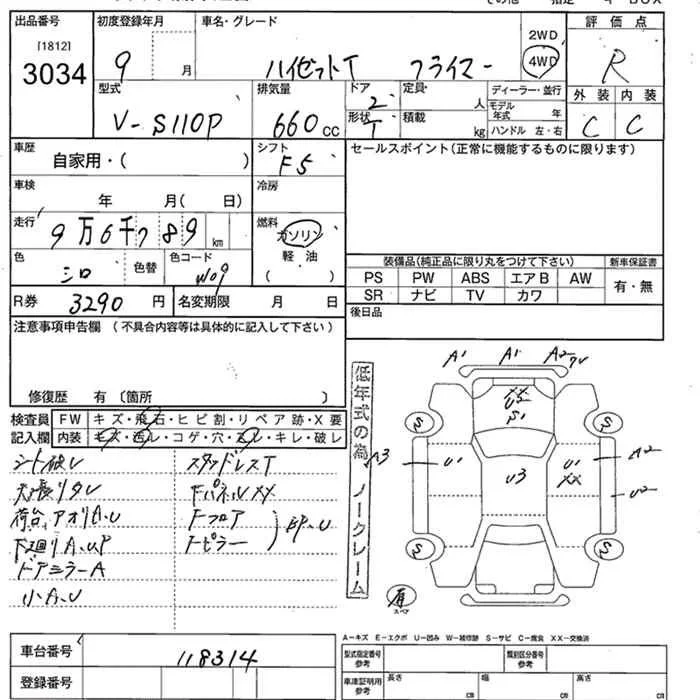 出品番号
[1812]
3034
初度登録年月
9 月
車名・グレード
ハイゼットT クライマー
2WD
4WD
評価点
R
型式
V-S110P
排気量
660 CC
ドア
2
形状
T
定員
人
積載
kg
ディーラー・並行
モデル年式 年
ハンドル 左・右
外装
内装
C
C
車歴
自家用・( )
シフト
F5
セールスポイント(正常に機能するものに限ります)
車検
年 月( 日)
冷房
走行
9万6千789 km
燃料
ガソリン
軽油
( )
色
シロ
色替
色コード
W09
装備品(純正品に限り丸をつけて下さい)
新車保証書
PS PW ABS エアB AW
SR ナビ TV カワ
有・無
R券
3290 円
名変期限 月 日
後日品
注意事項申告欄 (不具合内容等は具体的に記入して下さい)
修復歴 有 (箇所 )
検査員
記入欄
FW キズ・飛石・ヒビ割・リペア跡・X要
内装 キズ・汚レ・コゲ・穴・スレ・キレ・破レ
シート破レ
スタッドレスT
天張リタレ
FパネルXX
荷台、アオリA.U
Fフロア
Fピラー
BP.U
下廻リA.UP
ドアミラーA
小A.U
低年式の為ノークレーム
A1
A1
A2
XX
U2
S1
S
S
A3
U1
U3
U1
XX
A2
U2
S
S
有
スペア
A-キズ E-エクボ U-凹み W-補修跡 S-サビ C-腐食 XX-交換済
車台番号
118314
登録番号
型式指定番号
参考
類別区分番号
参考
車庫証明用
参考
長さ
cm
幅
cm
高さ
cm